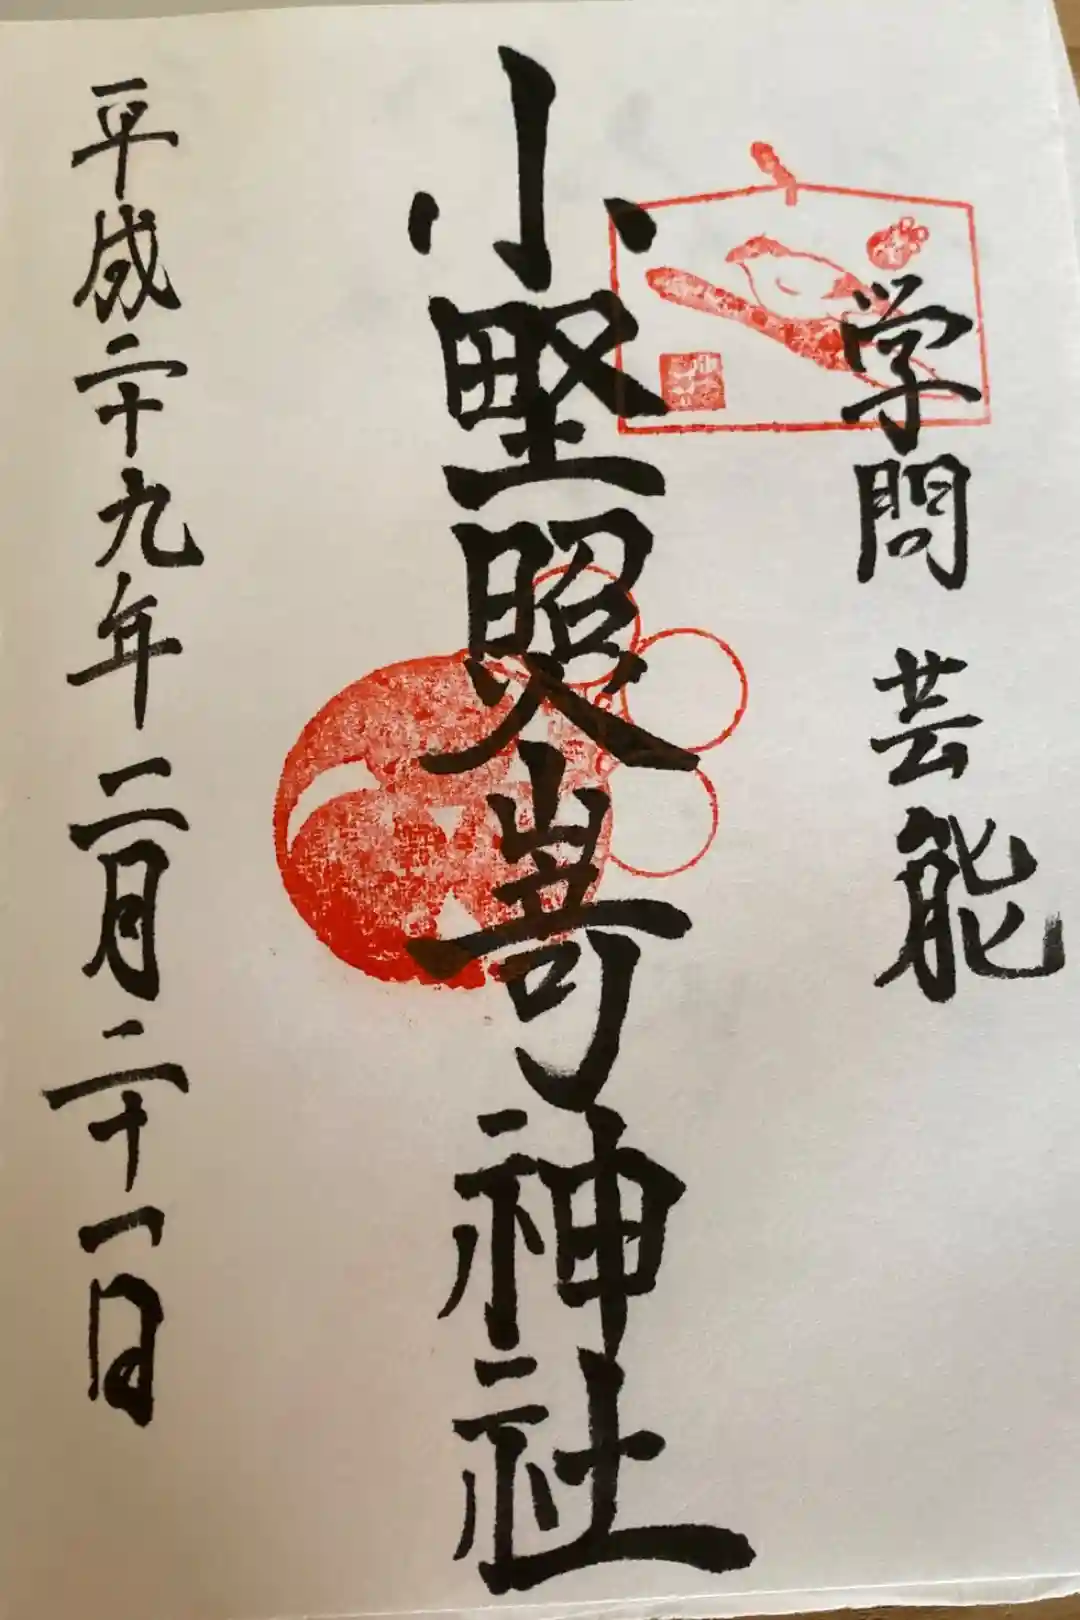 学問 芸能
小野照嵜神社
平成二十九年二月二十一日